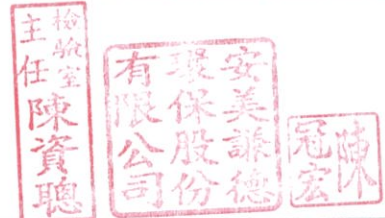 檢驗室
主任陳資聰
安美謙德
環保股份
有限公司
陳
冠宏